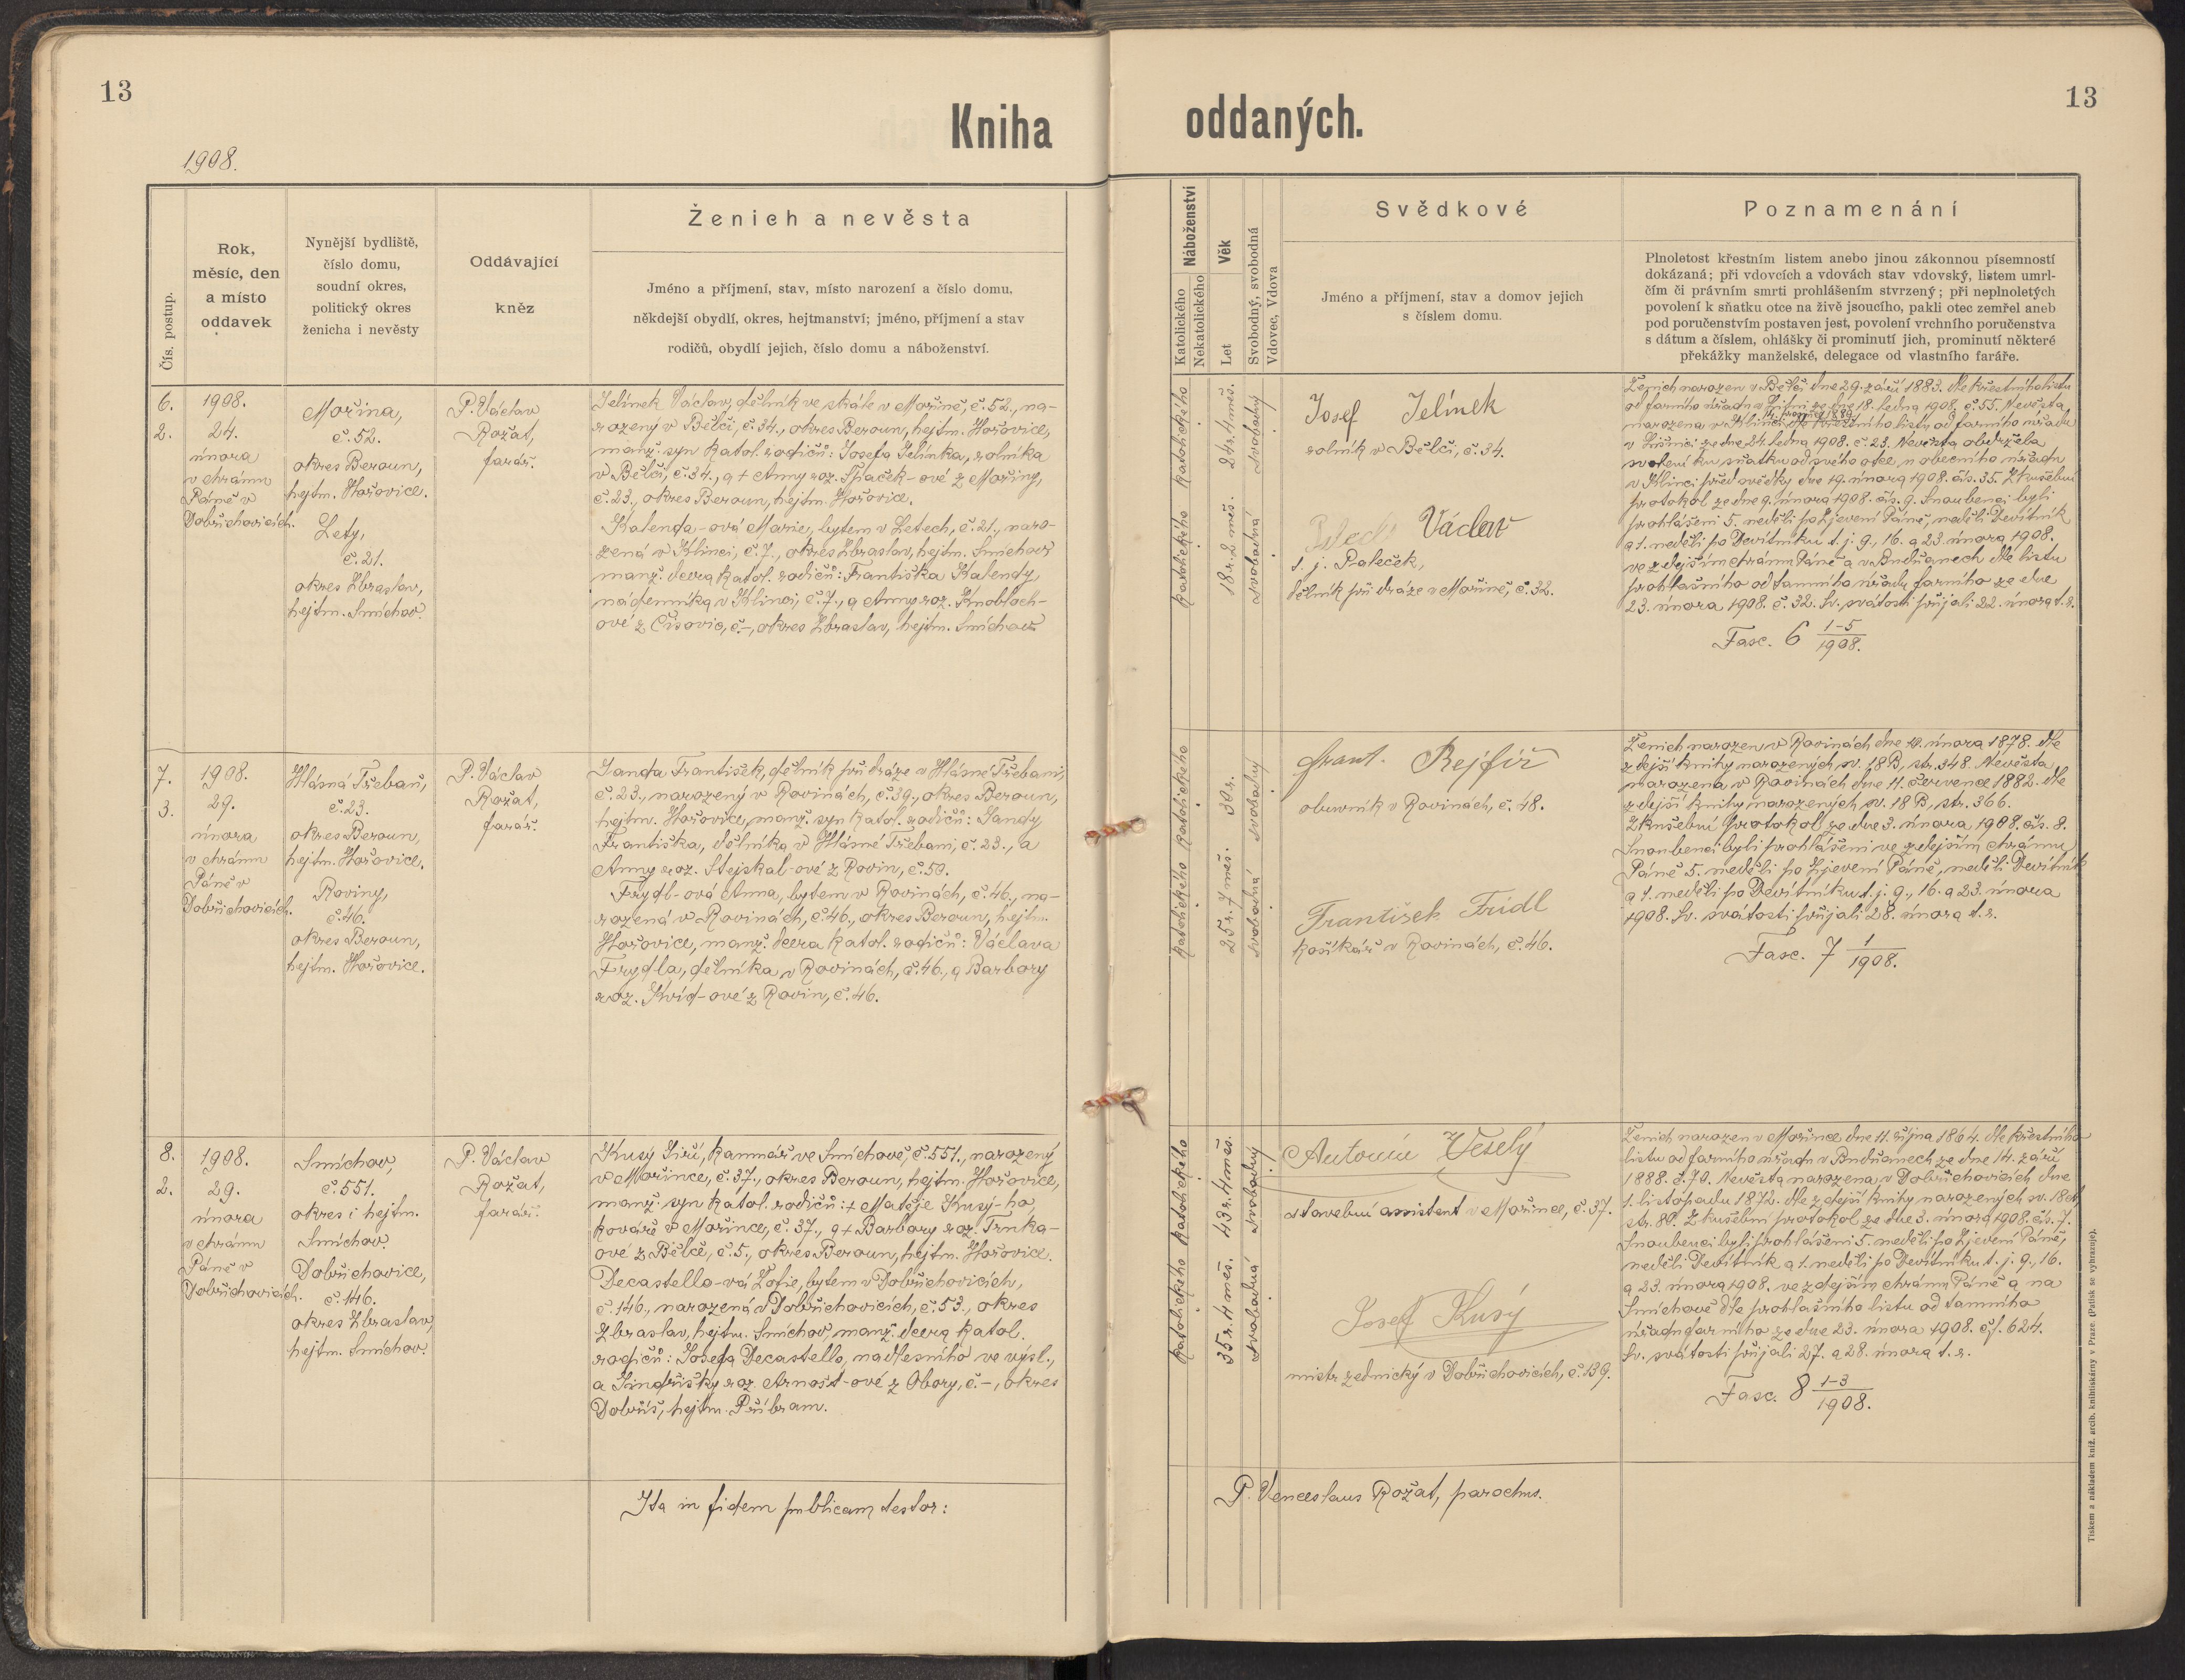 13
13
Kniha
oddaných.
1908.
Čís. postup.
Rok,
měsíc, den
a místo
oddavek
Nynější bydliště,
číslo domu,
soudní okres,
politický okres
ženicha i nevěsty
Oddávající
kněz
Ženich a nevěsta
Jméno a příjmení, stav, místo narození a číslo domu,
někdejší obydlí, okres, hejtmanství; jméno, příjmení a stav
rodičů, obydlí jejich, číslo domu a náboženství.
Náboženství
Katolického
Nekatolického
Věk
Let
Svobodný, svobodná
Vdovec, Vdova
Svědkové
Jméno a příjmení, stav a domov jejich
s číslem domu.
Poznamenání
Plnoletost křestním listem anebo jinou zákonnou písemností
dokázaná; při vdovcích a vdovách stav vdovský, listem umrl-
čím či právním smrti prohlášením stvrzený; při neplnoletých
povolení k sňatku otce na živě jsoucího, pakli otec zemřel aneb
pod poručenstvím postaven jest, povolení vrchního poručenstva
s dátum a číslem, ohlášky či prominutí jich, prominutí některé
překážky manželské, delegace od vlastního faráře.
6.
2.
1908.
24.
února
v chrámu
Páně v
Dobřichovicích.
Mořina,
č. 52.
okres Beroun,
hejtm. Hořovice.
Lety,
č. 21.
okres Zbraslav,
hejtm. Smíchov.
P. Václav
Rožat,
farář.
Jelínek Václav, dělník ve skále v Mořině, č. 52., na-
rozený v Bělči, č. 34., okres Beroun, hejtm. Hořovice,
manž. syn katol. rodičů: Josefa Jelínka, rolníka
v Bělči, č. 34., a + Anny roz. Špaček-ové z Mořiny,
č. 23., okres Beroun, hejtm. Hořovice.
Kalenda-ová Marie, bytem v Letech, č. 21., naro-
zená v Klinci, č. 7., okres Zbraslav, hejtm. Smíchov,
manž. dcera katol. rodičů: Františka Kalendy,
nádenníka v Klinci, č. 7., a Anny roz. Knobloch-
ové z Čisovic, č. -, okres Zbraslav, hejtm. Smíchov.
Katolického Katolického
18 r. 2 měs. 24 r. 4 měs.
svobodná svobodný
Josef Jelínek
rolník v Bělči, č. 34.
Václav
t. j. Paleček,
dělník při dráze v Mořině, č. 32.
Ženich narozen v Bělči dne 29. září 1883. dle křestního listu
od farního úřadu v Liteni ze dne 18. ledna 1908. č. 55. Nevěsta
narozena v Klinci dle křestního listu od farního úřadu
v Líšnici ze dne 24. ledna 1908. č. 23. Nevěsta obdržela
svolení ku sňatku od svého otce u obecního úřadu
v Klinci před svědky dne 19. února 1908. čís. 35. Zkušební
protokol ze dne 9. února 1908. čís. 9. Snoubenci byli
prohlášeni 5. neděli po Zjevení Páně, neděli Devítník
a 1. neděli po Devítníku t. j. 9., 16. a 23. února 1908.
ve zdejším chrámu Páně a v Budňanech dle listu
prohlašního od tamního úřadu farního ze dne
23. února 1908. č. 32. Sv. svátosti přijali 22. února t. r.
Fasc. 6 1-5/1908.
7.
3.
1908.
29.
února
v chrámu
Páně v
Dobřichovicích.
Hlásná Třebaň,
č. 23.
okres Beroun,
hejtm. Hořovice.
Roviny,
č. 46.
okres Beroun,
hejtm. Hořovice.
P. Václav
Rožat,
farář.
Janda František, dělník při dráze v Hlásné Třebani,
č. 23., narozený v Rovinách, č. 39., okres Beroun,
hejtm. Hořovice, manž. syn katol. rodičů: Jandy
Františka, dělníka v Hlásné Třebani, č. 23., a
Anny roz. Stejskal-ové z Rovin, č. 50.
Frydl-ová Anna, bytem v Rovinách, č. 46., na-
rozená v Rovinách, č. 46., okres Beroun, hejtm.
Hořovice, manž. dcera katol. rodičů: Václava
Frydla, dělníka v Rovinách, č. 46., a Barbory
roz. Kvíd-ové z Rovin, č. 46.
Katolického Katolického
25 r. 7 měs. 30 r.
svobodná svobodný
Frant. Rejfíř
obuvník v Rovinách, č. 48.
František Frídl
košíkář v Rovinách, č. 46.
Ženich narozen v Rovinách dne 10. února 1878. dle
zdejší knihy narozených sv. 18 B, str. 348. Nevěsta
narozena v Rovinách dne 11. července 1882. dle
zdejší knihy narozených sv. 18 B, str. 366.
Zkušební protokol ze dne 3. února 1908. čís. 8.
Snoubenci byli prohlášeni ve zdejším chrámu
Páně 5. neděli po Zjevení Páně, neděli Devítník
a 1. neděli po Devítníku t. j. 9., 16. a 23. února
1908. Sv. svátosti přijali 28. února t. r.
Fasc. 7 1/1908.
8.
2.
1908.
29.
února
v chrámu
Páně v
Dobřichovicích.
Smíchov,
č. 551.
okres i hejtm.
Smíchov.
Dobřichovice,
č. 146.
okres Zbraslav,
hejtm. Smíchov.
P. Václav
Rožat,
farář.
Kusý Jiří, kamnář ve Smíchově, č. 551., narozený
v Mořince, č. 37., okres Beroun, hejtm. Hořovice,
manž. syn katol. rodičů: + Matěje Kusý-ho,
kováře v Mořince, č. 37., a + Barbory roz. Trnka-
ové z Bělče, č. 5., okres Beroun, hejtm. Hořovice.
Decastello-vá Žofie, bytem v Dobřichovicích,
č. 146., narozená v Dobřichovicích, č. 53., okres
Zbraslav, hejtm. Smíchov, manž. dcera katol.
rodičů: Josefa Decastello, nadlesního ve výsl.,
a Jindřišky roz. Arnošt-ové z Obory, č. -, okres
Dobříš, hejtm. Příbram.
Katolického Katolického
35 r. 4 měs. 43 r. 4 měs.
svobodná svobodný
Antonín Veselý
stavební assistent v Mořince, č. 37.
Josef Kusý
mistr zednický v Dobřichovicích, č. 139.
Ženich narozen v Mořince dne 11. října 1864. dle křestního
listu od farního úřadu v Budňanech ze dne 14. září
1888. č. 70. Nevěsta narozena v Dobřichovicích dne
1. listopadu 1872. dle zdejší knihy narozených sv.
str. 80. Zkušební protokol ze dne 3. února 1908. čís. 7.
Snoubenci byli prohlášeni 5. neděli po Zjevení Páně,
neděli Devítník a 1. neděli po Devítníku t. j. 9., 16.
a 23. února 1908. ve zdejším chrámu Páně a na
Smíchově dle prohlašního listu od tamního
úřadu farního ze dne 23. února 1908. čj. 624.
Sv. svátosti přijali 27. a 28. února t. r.
Fasc. 8 1-3/1908.
Ita in fidem publicam testor:
P. Venceslaus Rožat, parochus.
Tiskem a nákladem kníž. arcib. knihtiskárny v Praze. (Patisk se vyhrazuje).